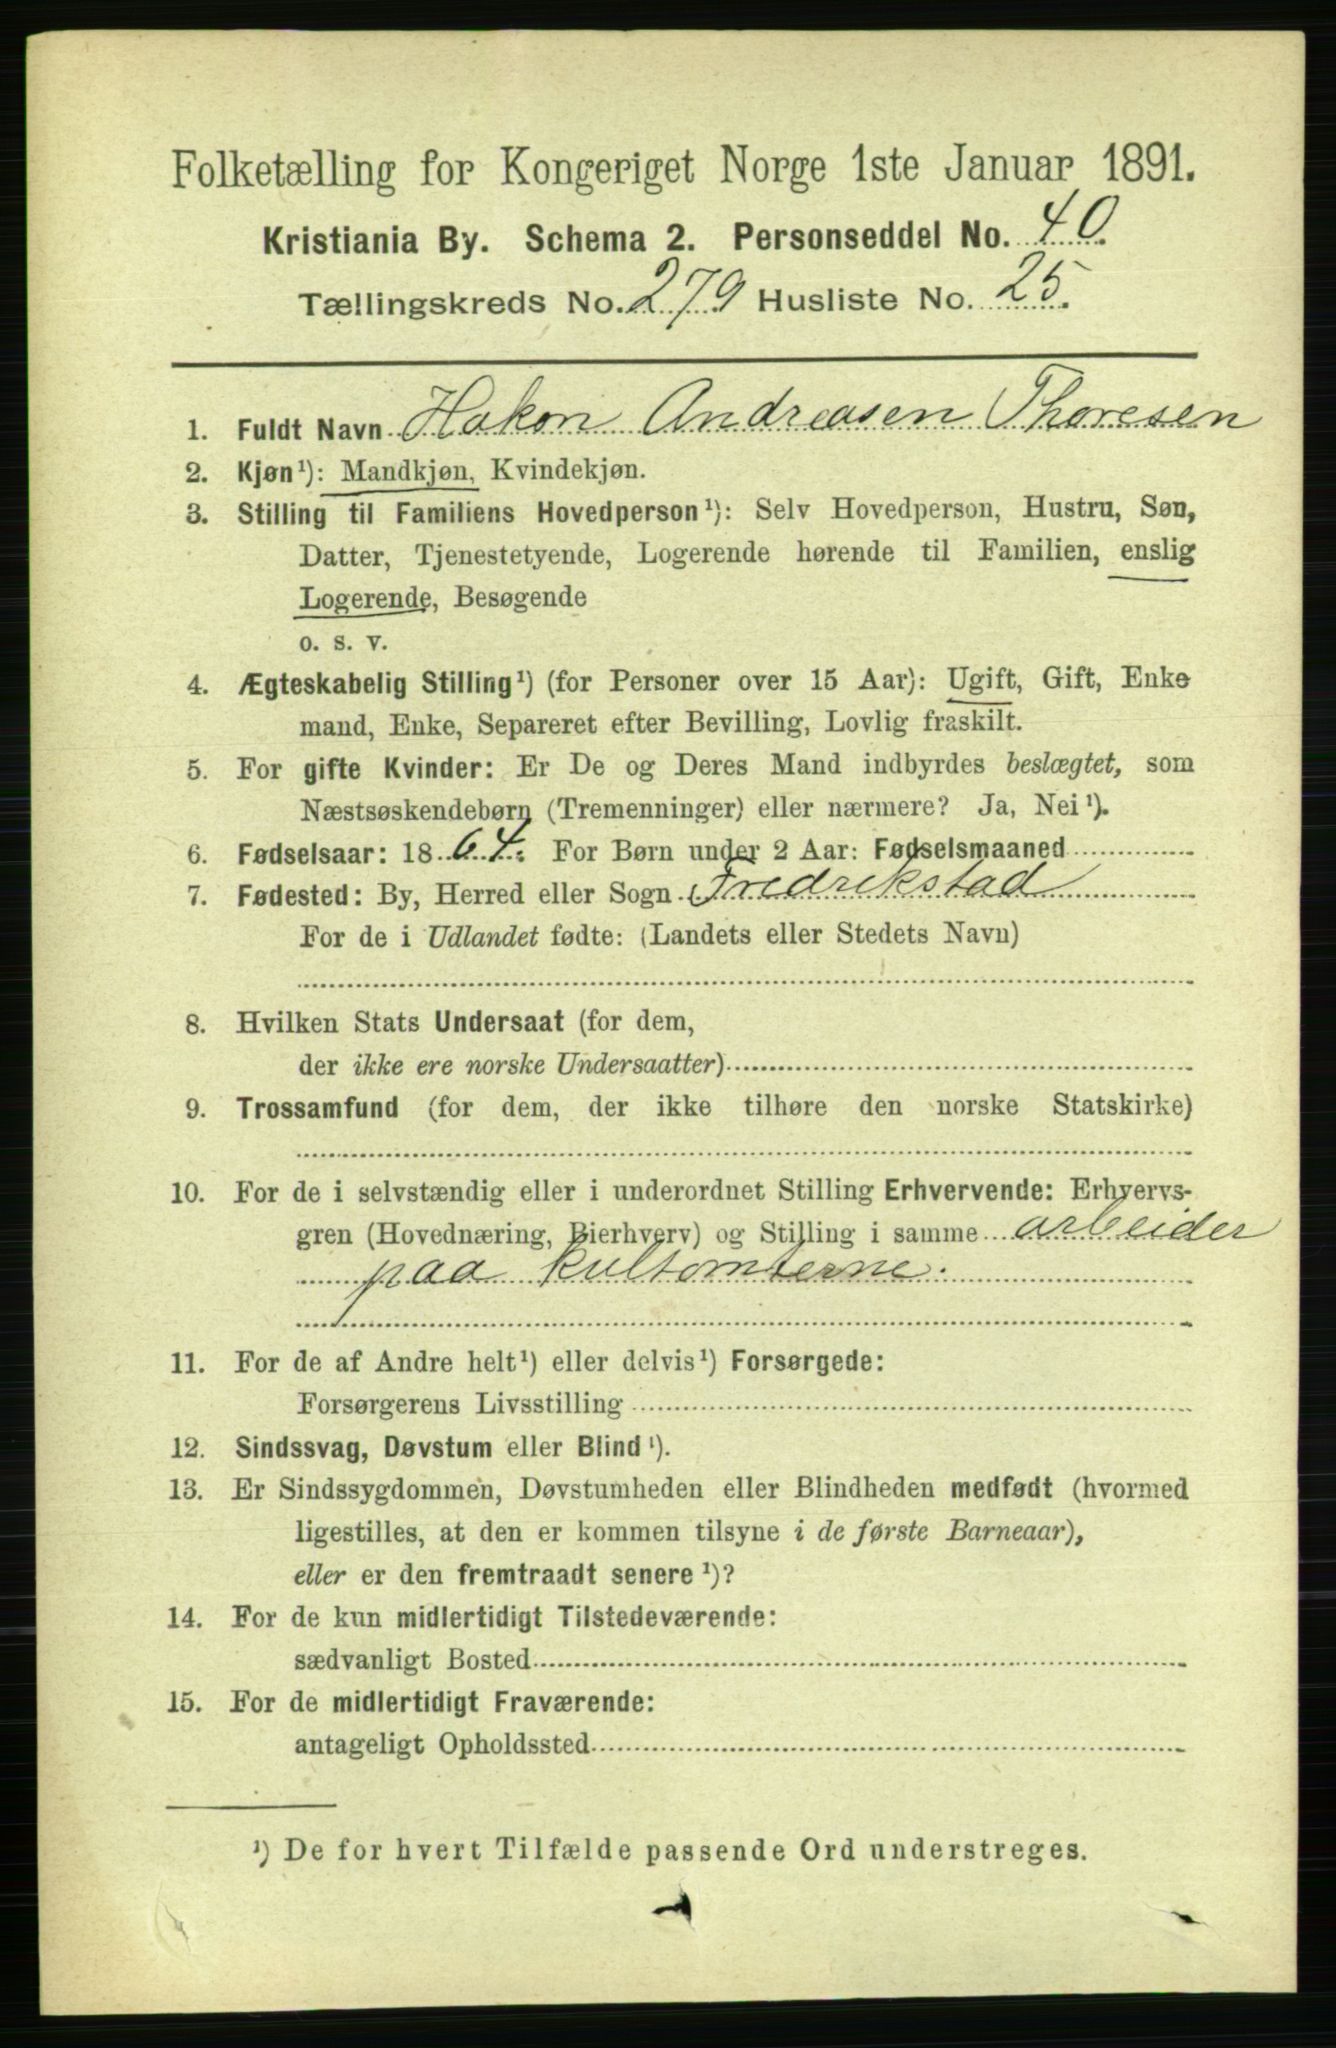 Folketælling for Kongeriget Norge 1ste Januar 1891.
Kristiania By. Schema 2. Personseddel No. 40.
Tællingskreds No. 279 Husliste No. 25.
1. Fuldt Navn Hakon Andreasen Thoresen
2. Kjøn¹): Mandkjøn, Kvindekjøn.
3. Stilling til Familiens Hovedperson¹): Selv Hovedperson, Hustru, Søn,
Datter, Tjenestetyende, Logerende hørende til Familien, enslig
Logerende, Besøgende
o. s. v.
4. Ægteskabelig Stilling¹) (for Personer over 15 Aar): Ugift, Gift, Enke
mand, Enke, Separeret efter Bevilling, Lovlig fraskilt.
5. For gifte Kvinder: Er De og Deres Mand indbyrdes beslægtet, som
Næstsøskendebørn (Tremenninger) eller nærmere? Ja, Nei¹).
6. Fødselsaar: 1864. For Børn under 2 Aar: Fødselsmaaned
7. Fødested: By, Herred eller Sogn Fredrikstad
For de i Udlandet fødte: (Landets eller Stedets Navn)
8. Hvilken Stats Undersaat (for dem,
der ikke ere norske Undersaatter)
9. Trossamfund (for dem, der ikke tilhøre den norske Statskirke)
10. For de i selvstændig eller i underordnet Stilling Erhvervende: Erhvervs-
gren (Hovednæring, Bierhverv) og Stilling i samme arbeider
paa kultomterne.
11. For de af Andre helt¹) eller delvis¹) Forsørgede:
Forsørgerens Livsstilling
12. Sindssvag, Døvstum eller Blind¹).
13. Er Sindssygdommen, Døvstumheden eller Blindheden medfødt (hvormed
ligestilles, at den er kommen tilsyne i de første Barneaar),
eller er den fremtraadt senere¹)?
14. For de kun midlertidigt Tilstedeværende:
sædvanligt Bosted
15. For de midlertidigt Fraværende:
antageligt Opholdssted
¹) De for hvert Tilfælde passende Ord understreges.